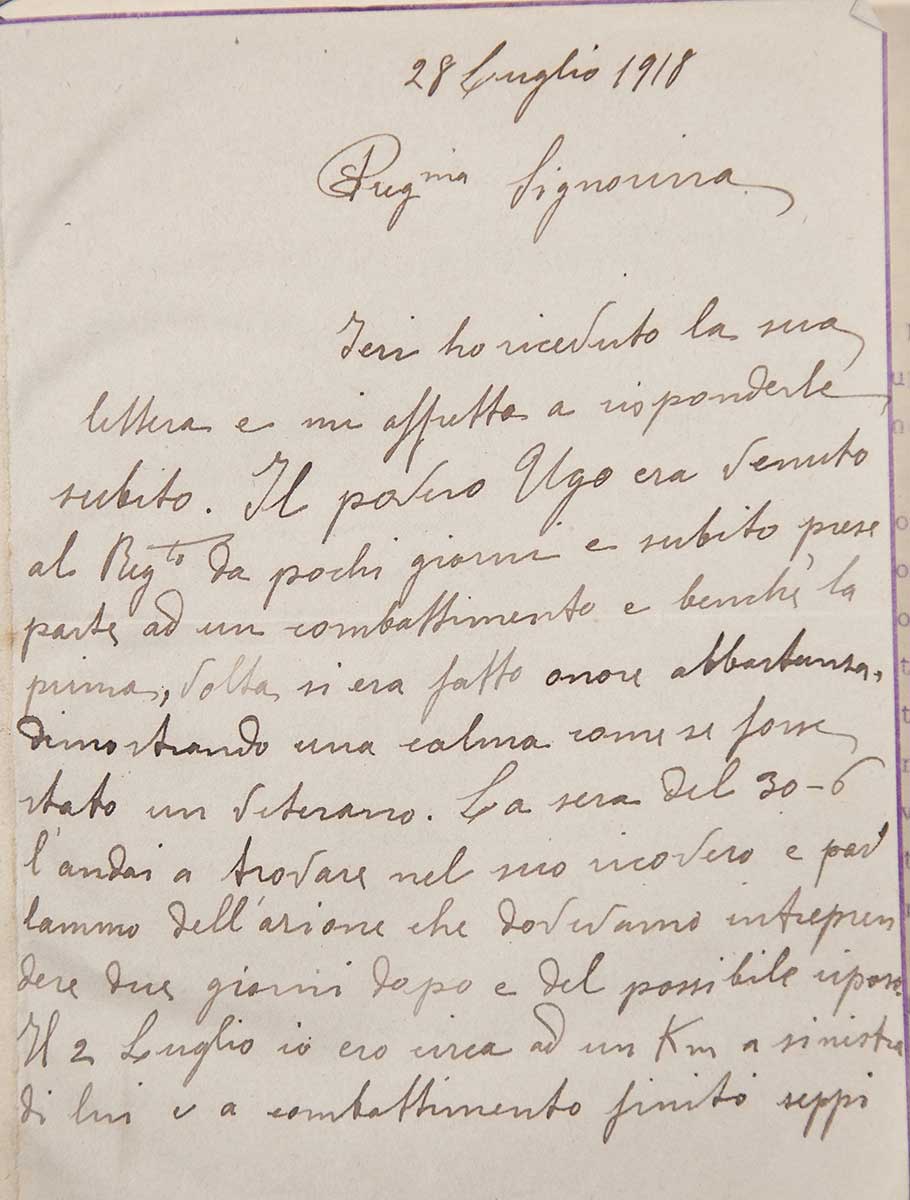 28 Luglio 1918
Preg.ma Signorina
Ieri ho ricevuto la sua
lettera e mi affretto a risponderle
subito. Il povero Ugo era venuto
al Regto da pochi giorni e subito prese
parte ad un combattimento e benchè la
prima, volta si era fatto onore abbastanza,
dimostrando una calma come se fosse
stato un veterano. La sera del 30-6
l'andai a trovare nel suo ricovero e par
lammo dell'azione che dovevamo intrepren
dere due giorni dopo e del possibile riposo.
Il 2 Luglio io ero circa ad un Km a sinistra
di lui e a combattimento finito seppi